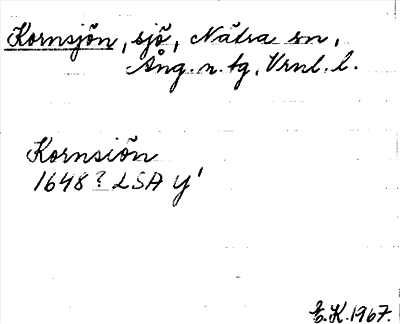 Kornsjön, sjö, Nätra sn,
Ång. n. tg, Vrnl. l.
Kornsiön
1648? LSA Y'
E.K. 1967.